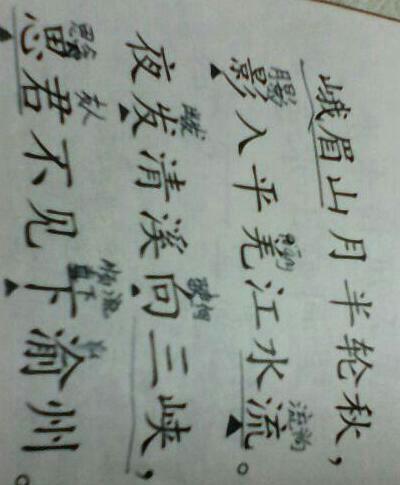 峨眉山月半轮秋，
影入平羌江水流。
月影
流淌
夜发清溪向三峡，
思君不见下渝州。
友人